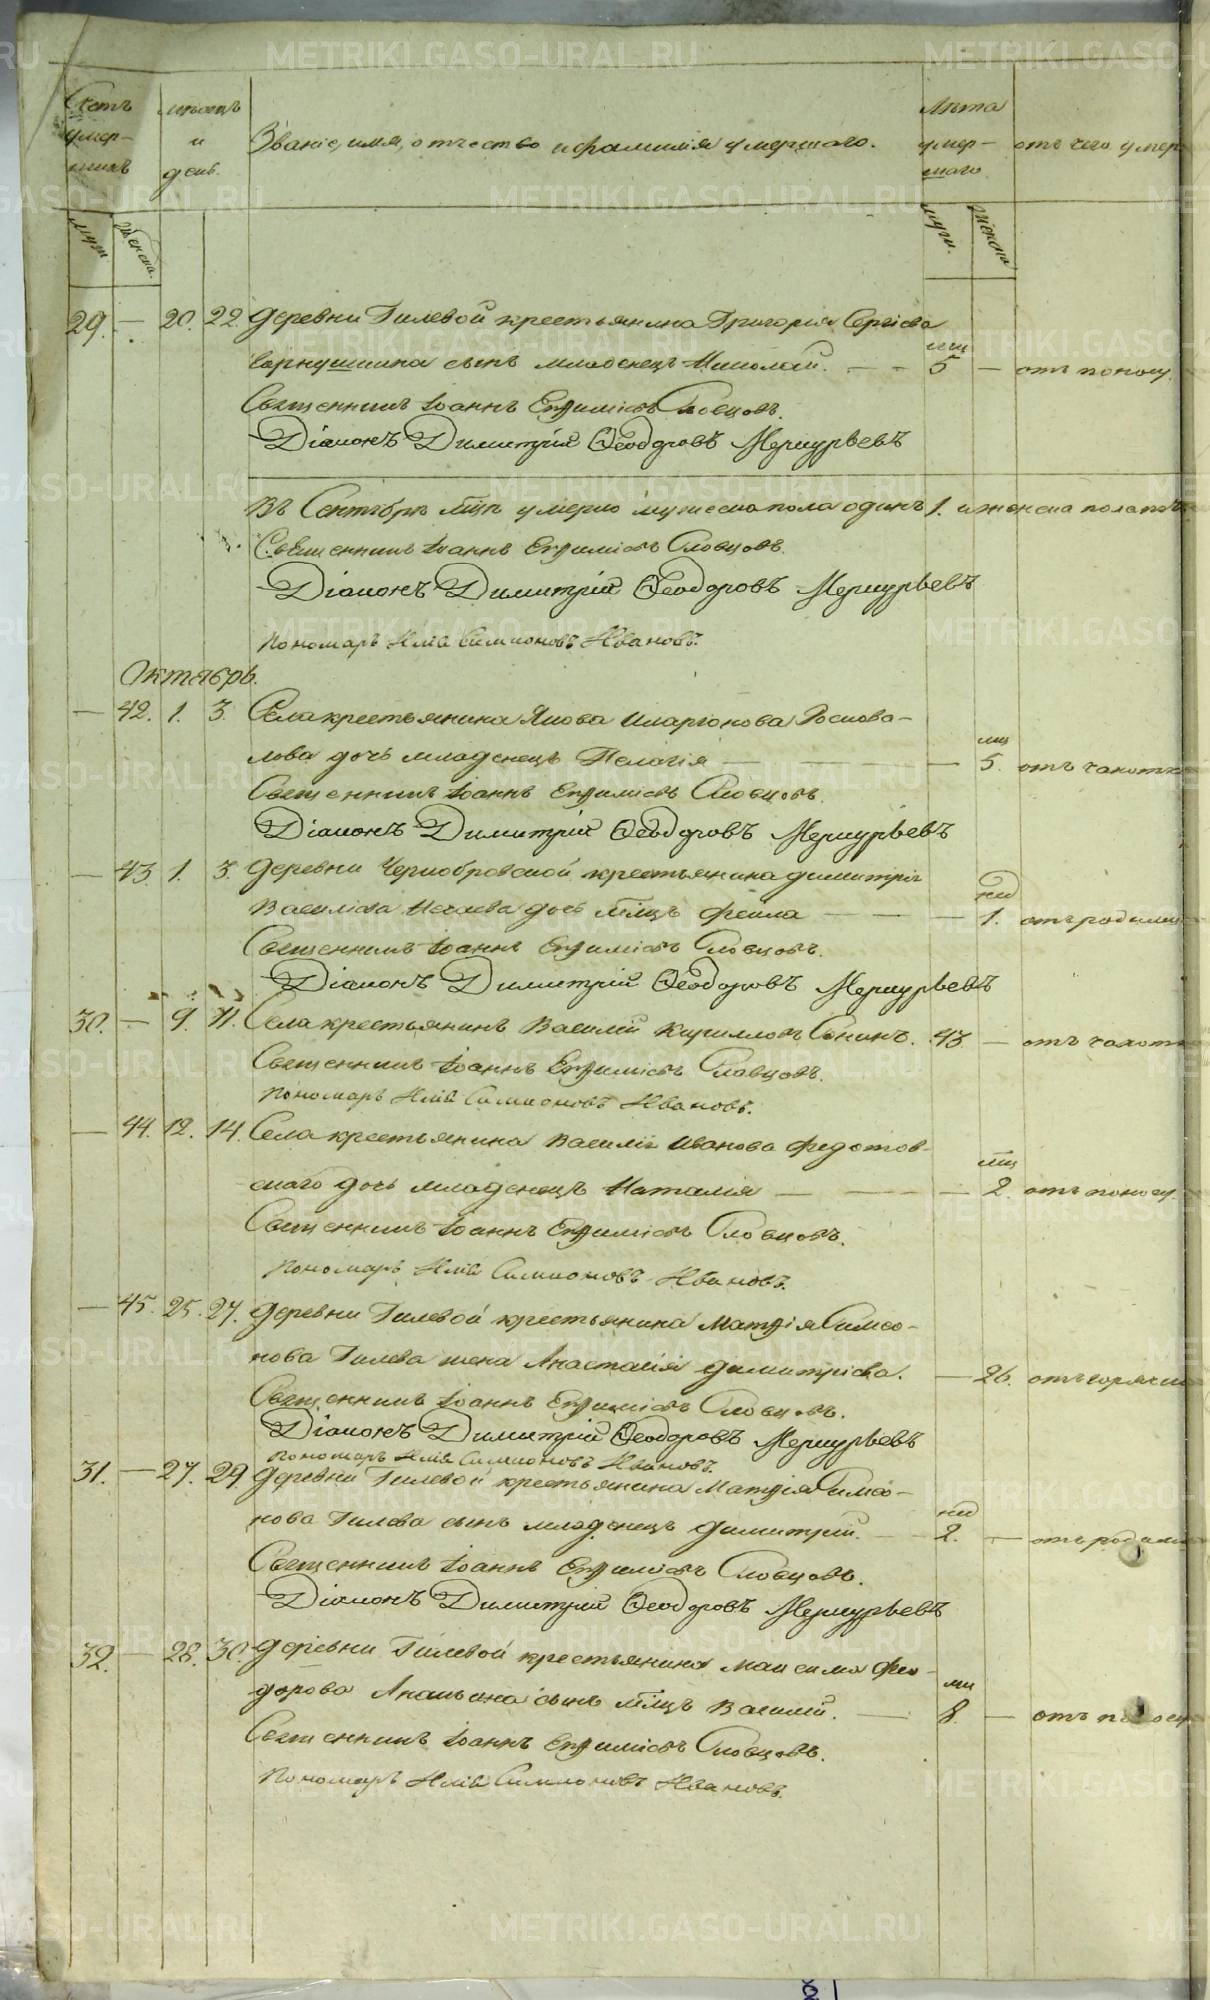 Счетъ умер- шихъ
мѣсяцъ и день.
Званіе, имя, отчество и фамилія умершаго.
Лѣта умер- шаго
отъ чего умер
муж.
женска.
муж.
женска
29. — 20. 22. Деревни Гилевой крестьянина Григорія Сергіева
сынъ младенецъ Николай. — — 5 — отъ поносу.
Священникъ Іоаннъ Евфиміевъ Словцовъ.
Діаконъ Димитрій Ѳеодоровъ Меркурьевъ
Въ Сентябрѣ мцѣ умерло мужеска пола одинъ 1. и женска пола
Священникъ Іоаннъ Евфиміевъ Словцовъ.
Діаконъ Димитрій Ѳеодоровъ Меркурьевъ
Пономарь Илія Симионовъ Ивановъ.
Октябрь.
— 42. 1. 3. Села крестьянина Якова Иларіонова
лова дочь младенецъ Пелагія — — — 5. отъ чахотк
мц
Священникъ Іоаннъ Евфиміевъ Словцовъ.
Діаконъ Димитрій Ѳеодоровъ Меркурьевъ
— 43. 1. 3. Деревни Чернобровской крестьянина Димитрія
нед
Василіева Нечаева дочь млцъ Фекла — — — 1. отъ родимц
Священникъ Іоаннъ Евфиміевъ Словцовъ.
Діаконъ Димитрій Ѳеодоровъ Меркурьевъ
30. — 9. 11. Села крестьянинъ Василій Кирилловъ Сонинъ. 43. — отъ чахотк
Священникъ Іоаннъ Евфиміевъ Словцовъ.
Пономарь Илія Симионовъ Ивановъ.
— 44. 12. 14. Села крестьянина Василія Иванова Федотов-
мц
скаго дочь младенецъ Наталія — — — 2. отъ поносу.
Священникъ Іоаннъ Евфиміевъ Словцовъ.
Пономарь Илія Симионовъ Ивановъ.
— 45. 25. 27. Деревни Гилевой крестьянина Матфія Симео-
нова Гилева жена Анастасія Димитріева. — 26. отъ горячк
Священникъ Іоаннъ Евфиміевъ Словцовъ.
Діаконъ Димитрій Ѳеодоровъ Меркурьевъ
Пономарь Илія Симионовъ Ивановъ.
31. — 27. 29. Деревни Гилевой крестьянина Матфія Симео-
нед
нова Гилева сынъ младенецъ Димитрій. — 2. — отъ родим
Священникъ Іоаннъ Евфиміевъ Словцовъ.
Діаконъ Димитрій Ѳеодоровъ Меркурьевъ
32. — 28. 30. Деревни Гилевой крестьянина Максима Фео-
мц
дорова Ананьина сынъ млцъ Василій. — 8. — отъ поносу
Священникъ Іоаннъ Евфиміевъ Словцовъ.
Пономарь Илія Симионовъ Ивановъ.